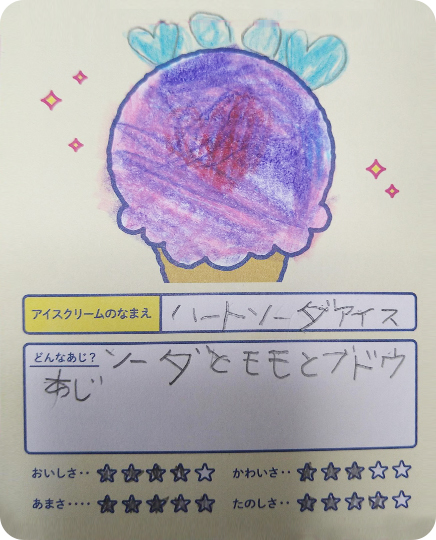 アイスクリームのなまえ ハートソーダアイス
どんなあじ？ ソーダとモモとブドウ
あじ
おいしさ‥ ★★★★☆ かわいさ‥ ★★★☆☆
あまさ‥‥ ★★★★★ たのしさ‥ ★★★★☆